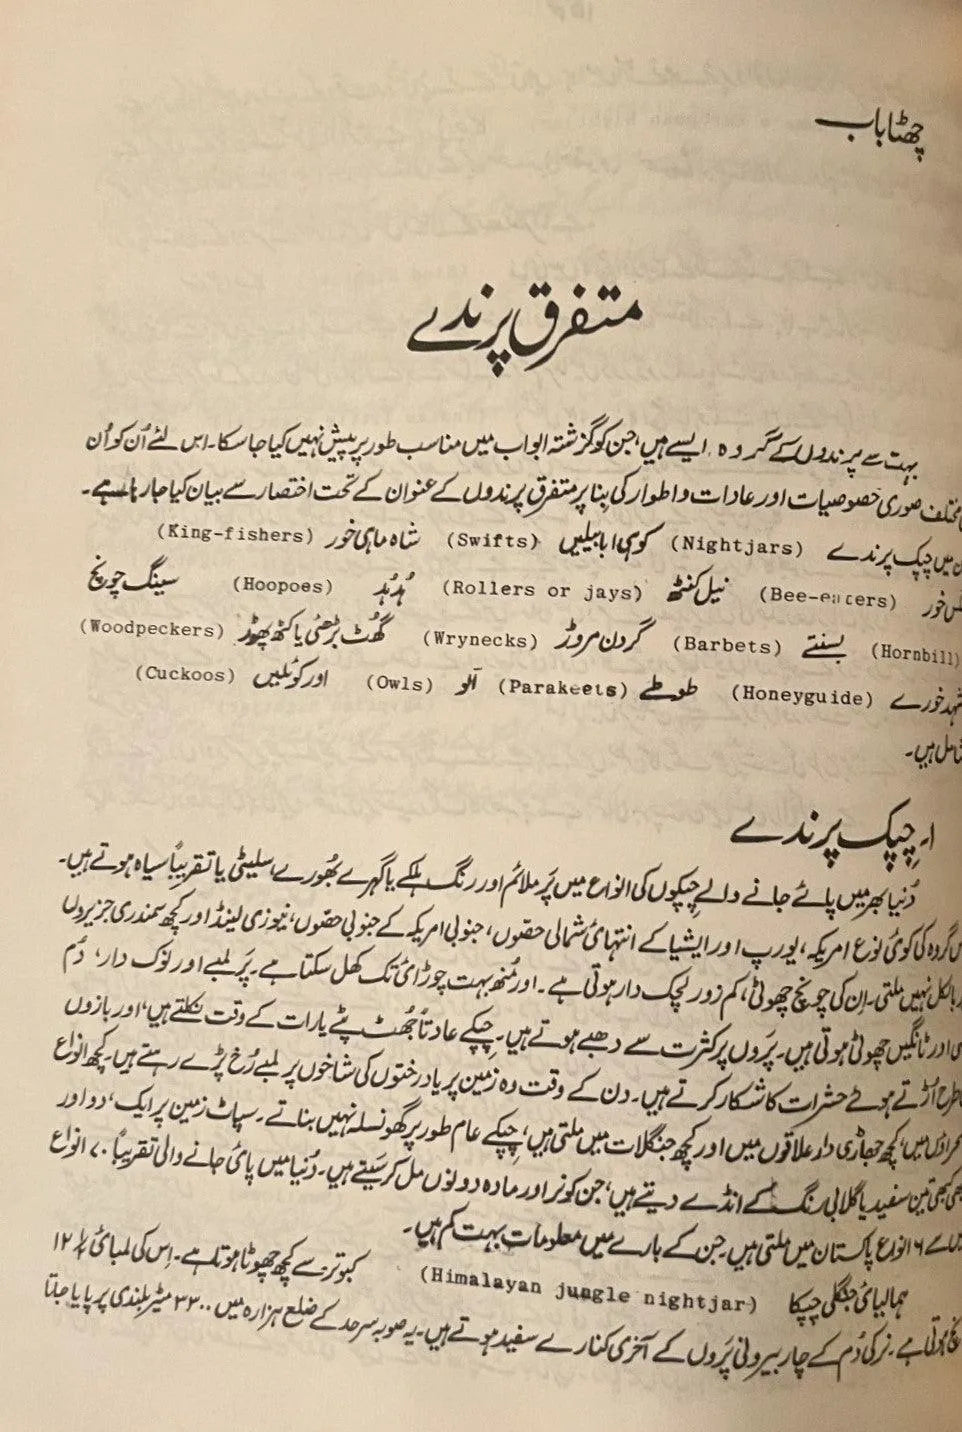 چھٹا باب
متفرق پرندے
بہت سے پرندوں کے گروہ ایسے ہیں، جن کو گزشتہ ابواب میں مناسب طور پر پیش نہیں کیا جا سکا۔ اس لئے اُن کو اُن
مختلف صوری خصوصیات اور عادات و اطوار کی بنا پر متفرق پرندوں کے عنوان کے تحت اختصار سے بیان کیا جا رہا ہے۔
میں چپک پرندے (Nightjars) کوہی ابابیلیں (Swifts) شاہ ماہی خور (King-fishers)
خور (Bee-eaters) نیل کنٹھ (Rollers or jays) ہُدہُد (Hoopoes) سینگ چونچ
(Hornbill) بسنتے (Barbets) گردن مروڑ (Wrynecks) گھُٹ بڑھئی یا کٹھ پھوڑ (Woodpeckers)
شہد خورے (Honeyguide) طوطے (Parakeets) اُلو (Owls) اور کوئلیں (Cuckoos)
ہیں۔
۱۔ چِپک پرندے
دُنیا بھر میں پائے جانے والے چِپکوں کی انواع میں پَر ملائم اور رنگ ہلکے یا گہرے بھُورے سلیٹی یا تقریباً سیاہ ہوتے ہیں۔
گروہ کی کوئی نوع امریکہ، یورپ اور ایشیا کے انتہائی شمالی حصّوں، جنوبی امریکہ کے جنوبی حصّوں، نیوزی لینڈ اور کچھ سمندری جزیروں
بالکل نہیں ملتی۔ اِن کی چونچ چھوٹی، کم زور لچک دار ہوتی ہے۔ اور مُنھ بہت چوڑائی تک کھل سکتا ہے۔ پَر لمبے اور نوک دار، دُم
اور ٹانگیں چھوٹی ہوتی ہیں۔ پَروں پر کثرت سے دھبے ہوتے ہیں۔ چِپکے عادتاً جھُٹ پٹے یا رات کے وقت نکلتے ہیں، اور بازوں
طرح اُڑتے ہوئے حشرات کا شکار کرتے ہیں۔ دن کے وقت وہ زمین پر یا درختوں کی شاخوں پر لمبے رُخ پڑے رہتے ہیں۔ کچھ انواع
میں، کچھ جھاڑی دار علاقوں میں اور کچھ جنگلات میں ملتی ہیں، چپکے عام طور پر گھونسلہ نہیں بناتے۔ سپاٹ زمین پر ایک، دو اور
کبھی تین سفید یا گلابی رنگ کے انڈے دیتے ہیں، جن کو نر اور مادہ دونوں مل کر سَیتے ہیں۔ دُنیا میں پائی جانے والی تقریباً ۷۰ انواع
سے ۶ انواع پاکستان میں ملتی ہیں۔ جن کے بارے میں معلومات بہت کم ہیں۔
ہمالیائی جنگلی چپکا (Himalayan jungle nightjar) کبوتر سے کچھ چھوٹا ہوتا ہے۔ اِس کی لمبائی ۱۲
ہوتی ہے۔ نر کی دُم کے چار بیرونی پَروں کے آخری کنارے سفید ہوتے ہیں۔ یہ صوبہ سرحد کے ضلع ہزارہ میں ۳۳۰۰ میٹر بلندی پر پایا جاتا